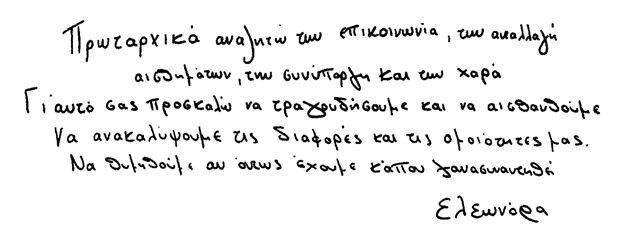 Πρωταρχικά αναζητώ την επικοινωνία, την ανταλλαγή
αισθημάτων, την συνύπαρξη και την χαρά
Γι'αυτό σας προσκαλώ να τραγουδήσουμε και να αισθανθούμε
Να ανακαλύψουμε τις διαφορές και τις ομοιότητες μας.
Να θυμηθούμε αν ίσως έχουμε κάπου ξανασυναντηθεί
Ελεωνόρα